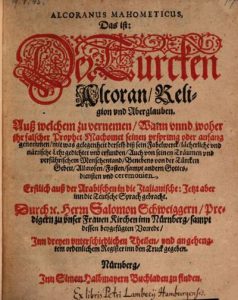 ALCORANUS MAHOMETICUS,
Das ist:
Der Türcken
Alcoran/ Reli-
gion und Aberglauben.
Auß welchem zu vernemen/ Wann unnd woher
ihr falscher Prophet Machomet seinen ursprung oder anfang
genommen/ mit was gelegenheit derselb diß sein Fabelwerck/ lächerliche und
närrische Lehr gedichtet und erfunden/ Auch von seinen Träumen und
verführischem Menschentand/ Benebens von der Türcken
Gebet/ Allmosen/ Fasten/ sampt andern Gottes-
diensten und ceremonien.
Erstlich auß der Arabischen in die Italianische: Jetzt aber
inn die Teutsche Sprach gebracht.
Durch Herrn Salomon Schweiggern/ Pre-
digern zu unser Frauen Kirchen inn Nürnberg/ sampt
dessen beygefügten Vorrede/
Inn dreyen unterschiedlichen Theilen/ und angeheng-
tem ordenlichem Register inn den Truck gegeben.
Nürnberg/
Inn Simon Halbmayern Buchladen zu finden.
Ex libris Petri Lambecij Hamburgensis